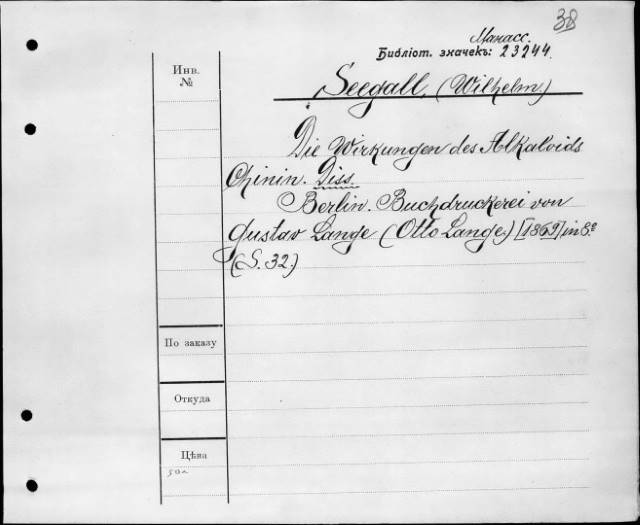 38
Манасс.
Библіот. значекъ: 23244.
Инв.
№
Seegall, (Wilhelm)
Die Wirkungen des Alkaloids
Chinin. Diss.
Berlin. Buchdruckerei von
Gustav Lange (Otto Lange) [1869] in 8.º
(S. 32.)
По заказу
Откуда
Цѣна